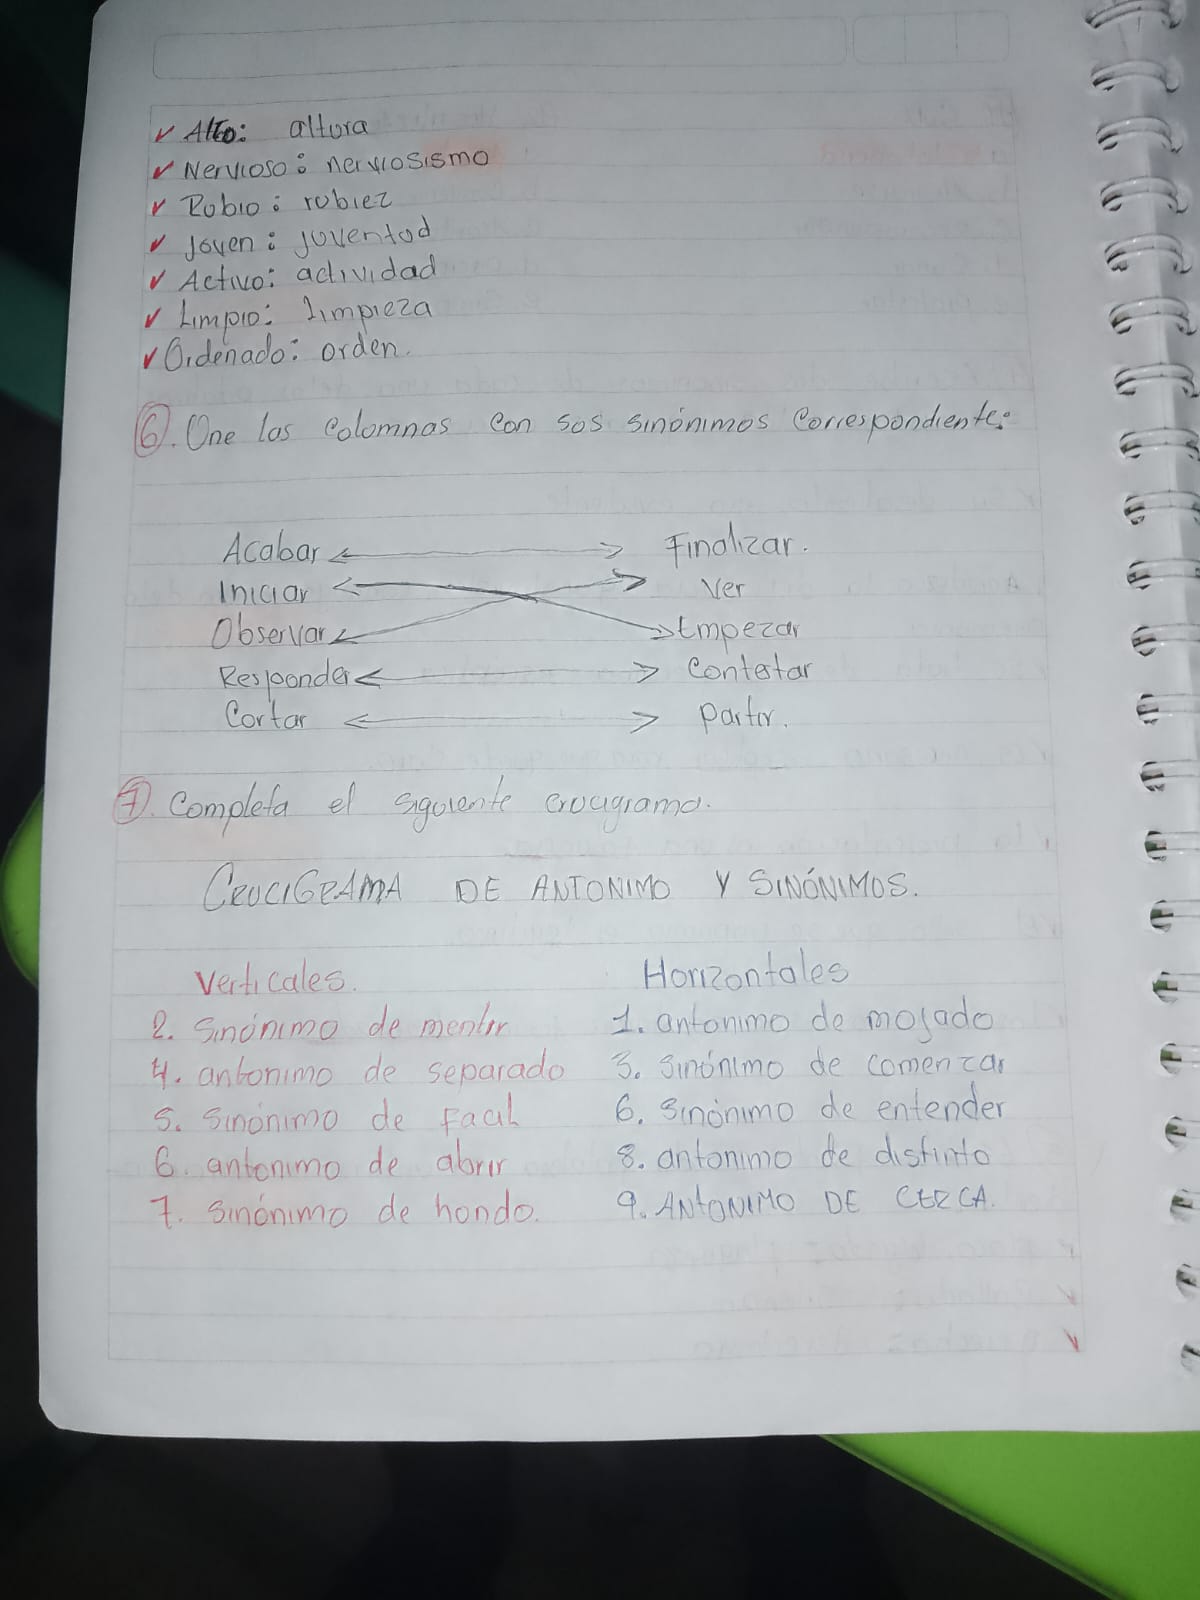 ✓ Alto: altura
✓ Nervioso: nerviosismo
✓ Rubio: rubiez
✓ Joven: juventud
✓ Activo: actividad
✓ Limpio: limpieza
✓ Ordenado: orden.
6. Une las columnas con sus sinónimos correspondiente:
Acabar Finalizar.
Iniciar Ver
Observar Empezar
Responder Contestar
Cortar partir.
7. Completa el siguiente crucigrama.
CRUCIGRAMA DE ANTONIMO Y SINÓNIMOS.
Verticales. Horizontales
2. Sinónimo de mentir 1. antonimo de mojado
4. antonimo de separado 3. Sinónimo de comenzar
5. Sinónimo de Facil 6. Sinónimo de entender
6. antonimo de abrir 8. antonimo de distinto
7. Sinónimo de hondo. 9. ANTONIMO DE CERCA.